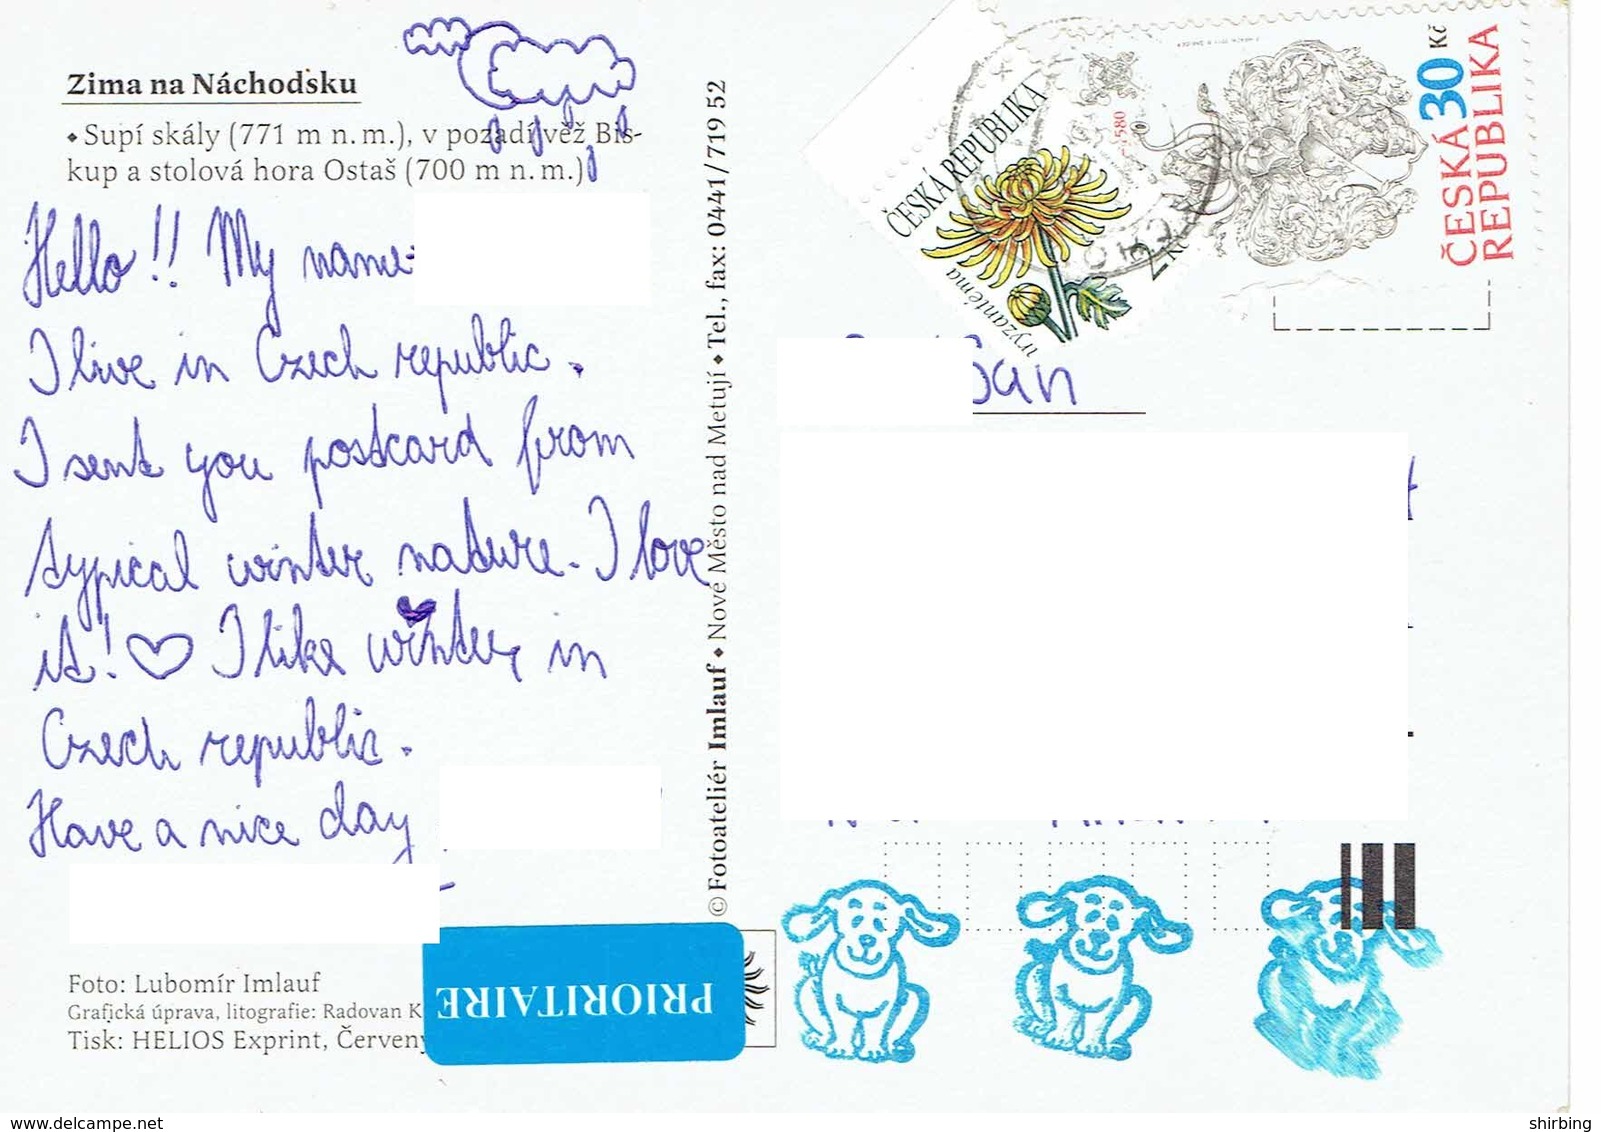 Zima na Náchodsku
Supí skály (771 m n. m.), v pozadí věž Bis-
kup a stolová hora Ostaš (700 m n. m.)
Hello!! My name:
I live in Czech republic.
I sent you postcard from
typical winter nature. I love
it! ♡ I like winter in
Czech republic.
Have a nice day
Foto: Lubomír Imlauf
Grafická úprava, litografie: Radovan K
Tisk: HELIOS Exprint, Červen
PRIORITAIRE
© Fotoateliér Imlauf • Nové Město nad Metují • Tel., fax: 0441/719 52
ČESKÁ REPUBLIKA
2 Kč
ČESKÁ
REPUBLIKA
30 Kč
580
delcampe.net
shirbing